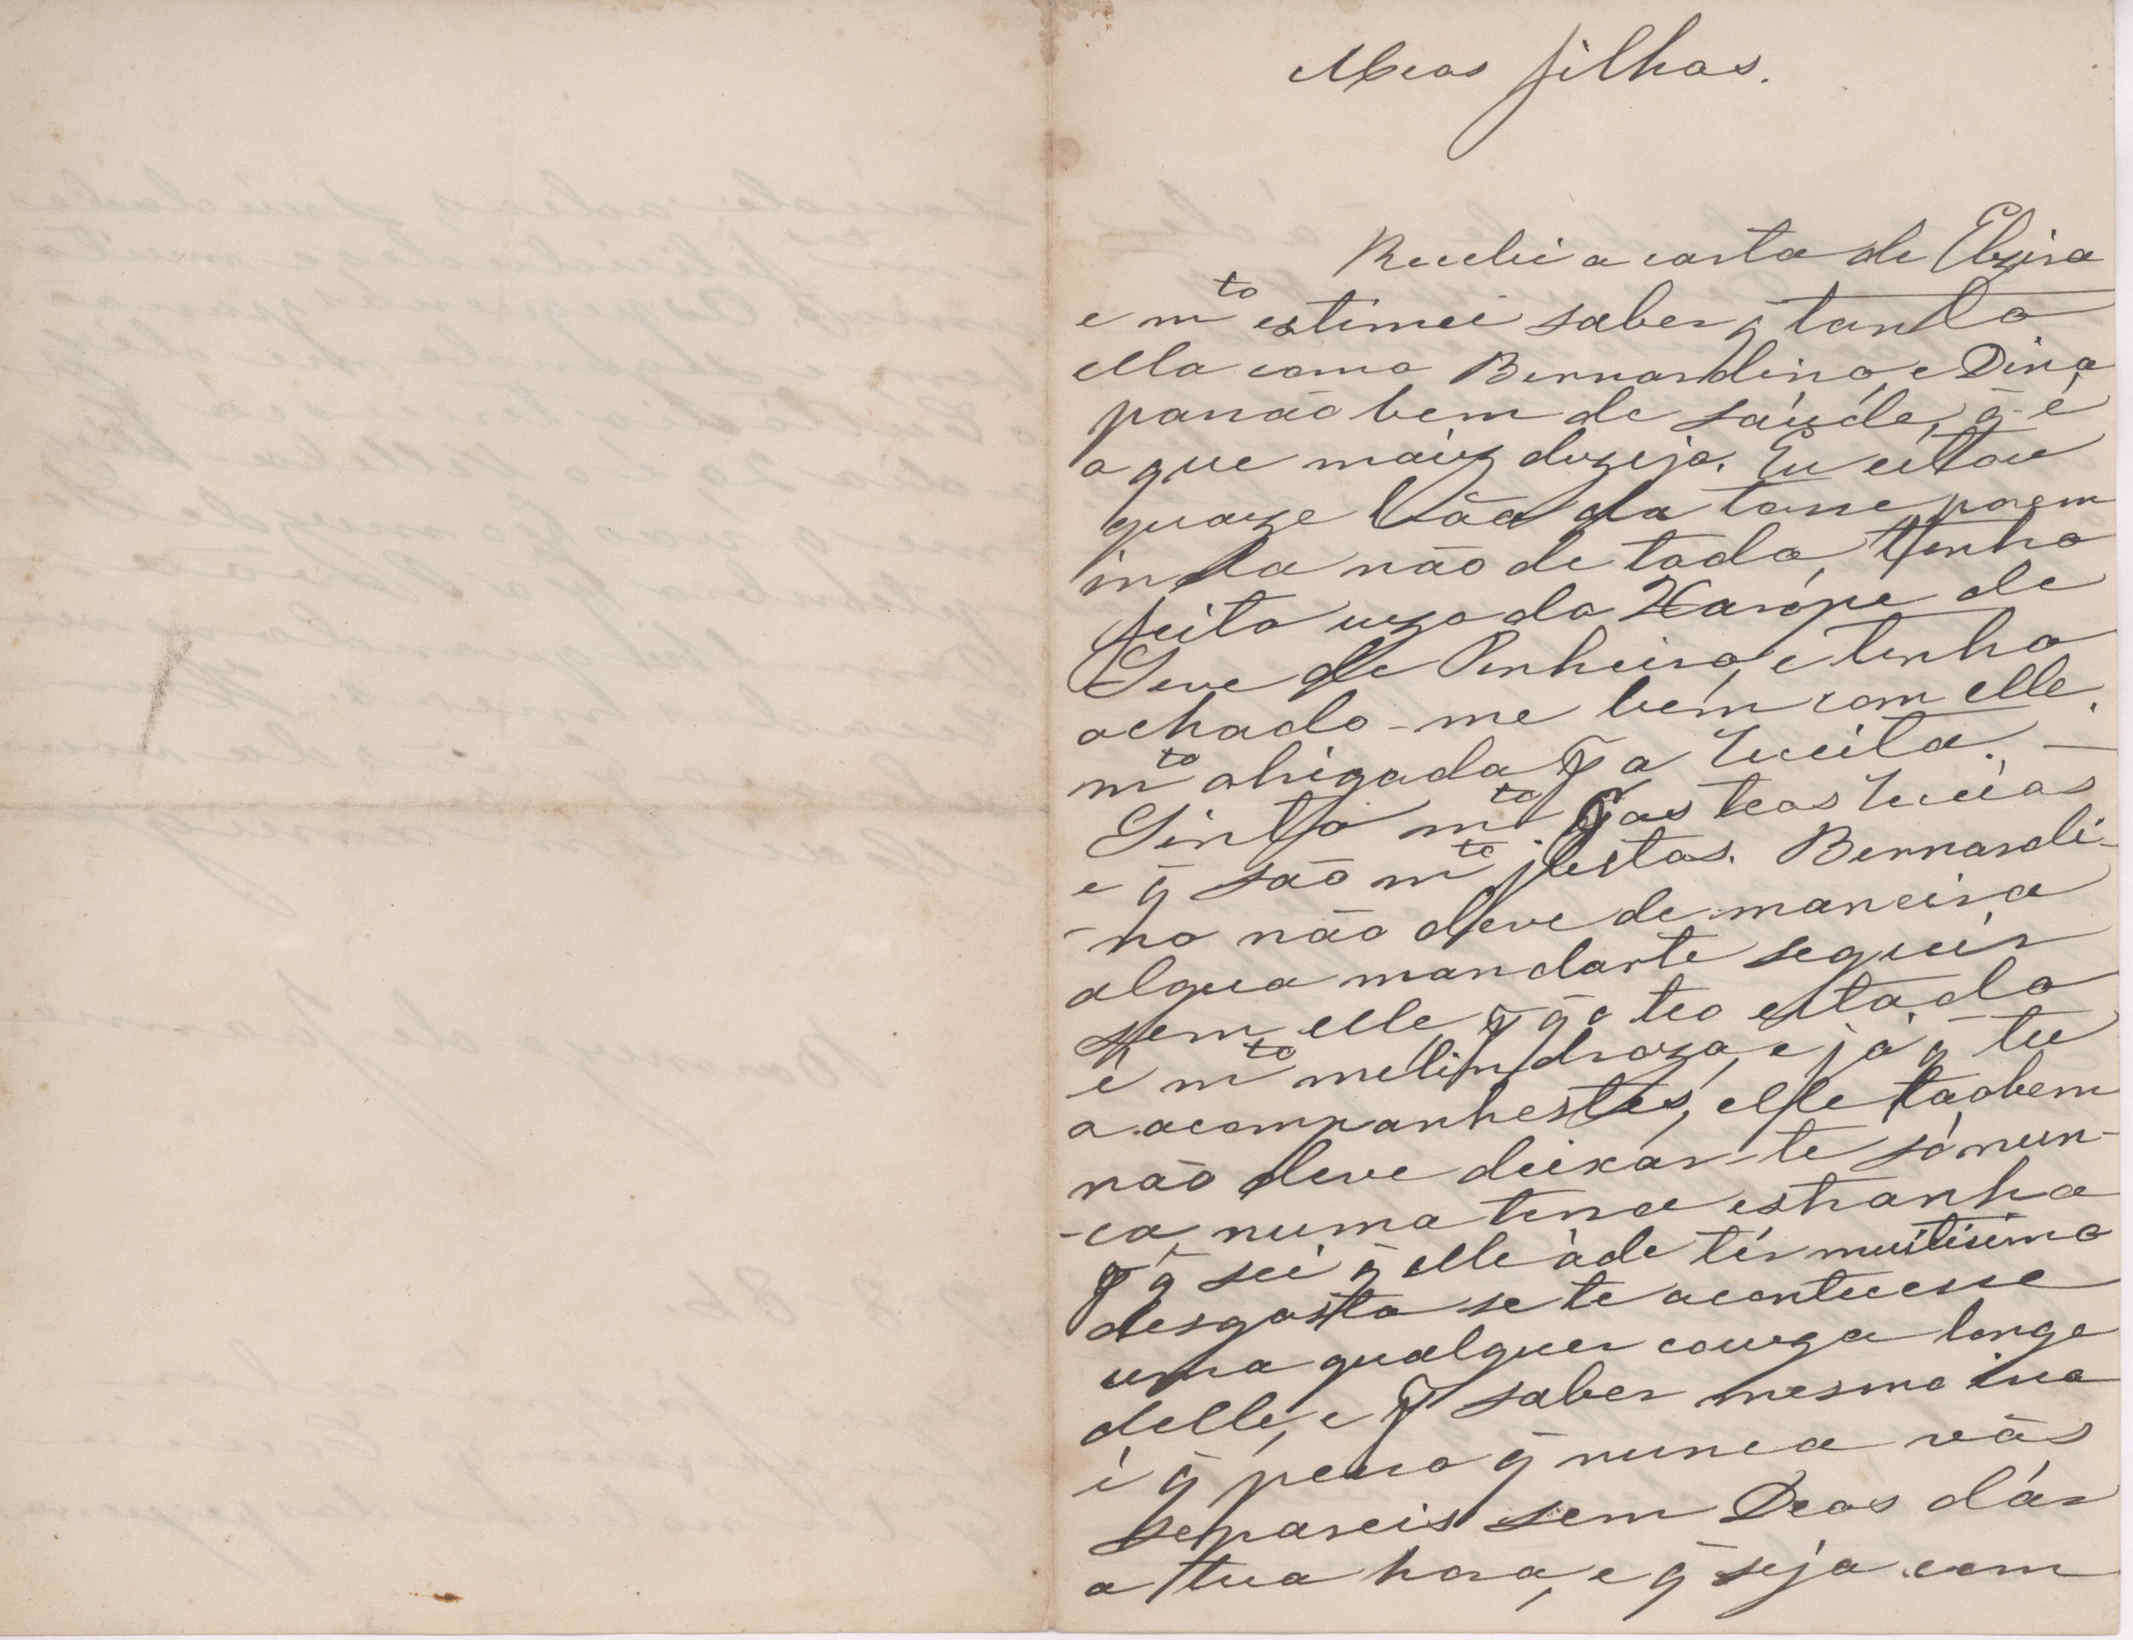 Meos filhos.
Recebi a carta de Elzira
e m.to estimei saber q̃ tanto
ella como Bernardino, e Dina
passão bem de saúde, q̃ é
o que maiz dezejo. Eu estou
quaze bôa da tosse porem
inda não de todo, tenho
feito uzo do Xarópe de
Seve de Pinheiro, e tenho
achado-me bem com elle,
m.to obrigada p.a Receita. —
Sinto m.to as teos
e q̃ são m.to justos. Bernardi-
-no não deve de maneira
algua mandarte seguir
sem elle, p q̃ o teo estado
é m.to melindrozo, e já q̃ tu
o acompanhestes, elle taobem
não deve deixár-te só nun-
-ca, numa terra estranha
p q̃ sei q̃ elle àde têr muitissimo
desgosto se te acontecesse
uma qualquer couza longe
delle, e p saber mesmo isso
é q̃ pesso q̃ nunca vôs
separeis sem Deos dár
a tua hora, e q̃ seja com